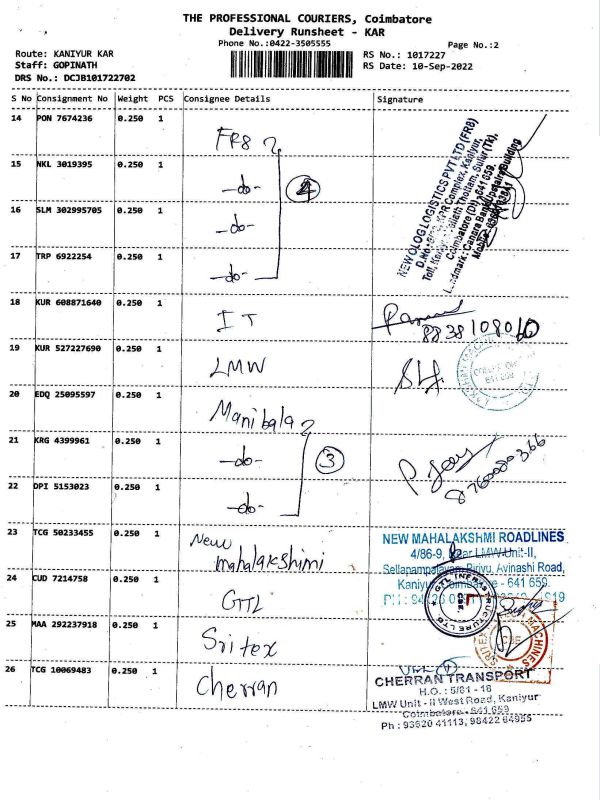 THE PROFESSIONAL COURIERS, Coimbatore
Delivery Runsheet - KAR
Phone No.:0422-3505555
Page No.:2
Route: KANIYUR KAR
RS No.: 1017227
Staff: GOPINATH
RS Date: 10-Sep-2022
DRS No.: DCJB101722702
S No Consignment No Weight PCS Consignee Details Signature
14 PON 7674236 0.250 1 FR8
15 NKL 3019395 0.250 1 -do-
4
16 SLM 302995705 0.250 1 -do-
17 TRP 6922254 0.250 1 -do-
NEW OLOG LOGISTICS PVT LTD (FR8)
Complex, Kaniyur,
Thottam, Sulur (Tk),
Coimbatore (Dt), 641 659.
Landmark: Canara Bank Upstairs Building
Mobile:
18 KUR 608871640 0.250 1 IT
8838108060
19 KUR 527227690 0.250 1 LMW
20 EDQ 25095597 0.250 1 Manibala
21 KRG 4399961 0.250 1 -do-
3
8760080366
22 DPI 5153023 0.250 1 -do-
23 TCG 50233455 0.250 1 New mahalakshimi
NEW MAHALAKSHMI ROADLINES
4/86-9, Near LMW Unit-II,
Sellapampalayam Pirivu, Avinashi Road,
Kaniyur, Coimbatore - 641 659.
24 CUD 7214758 0.250 1 GTL
GTL INFRASTRUCTURE LTD
CBE.
25 MAA 292237918 0.250 1 Sritex
SRITEX MACHINES
CBE
26 TCG 10069483 0.250 1 Cherran
CHERRAN TRANSPORT
H.O. : 5/81 - 18
LMW Unit - II West Road, Kaniyur
Coimbatore - 641 659
Ph : 93620 41113, 98422 64955